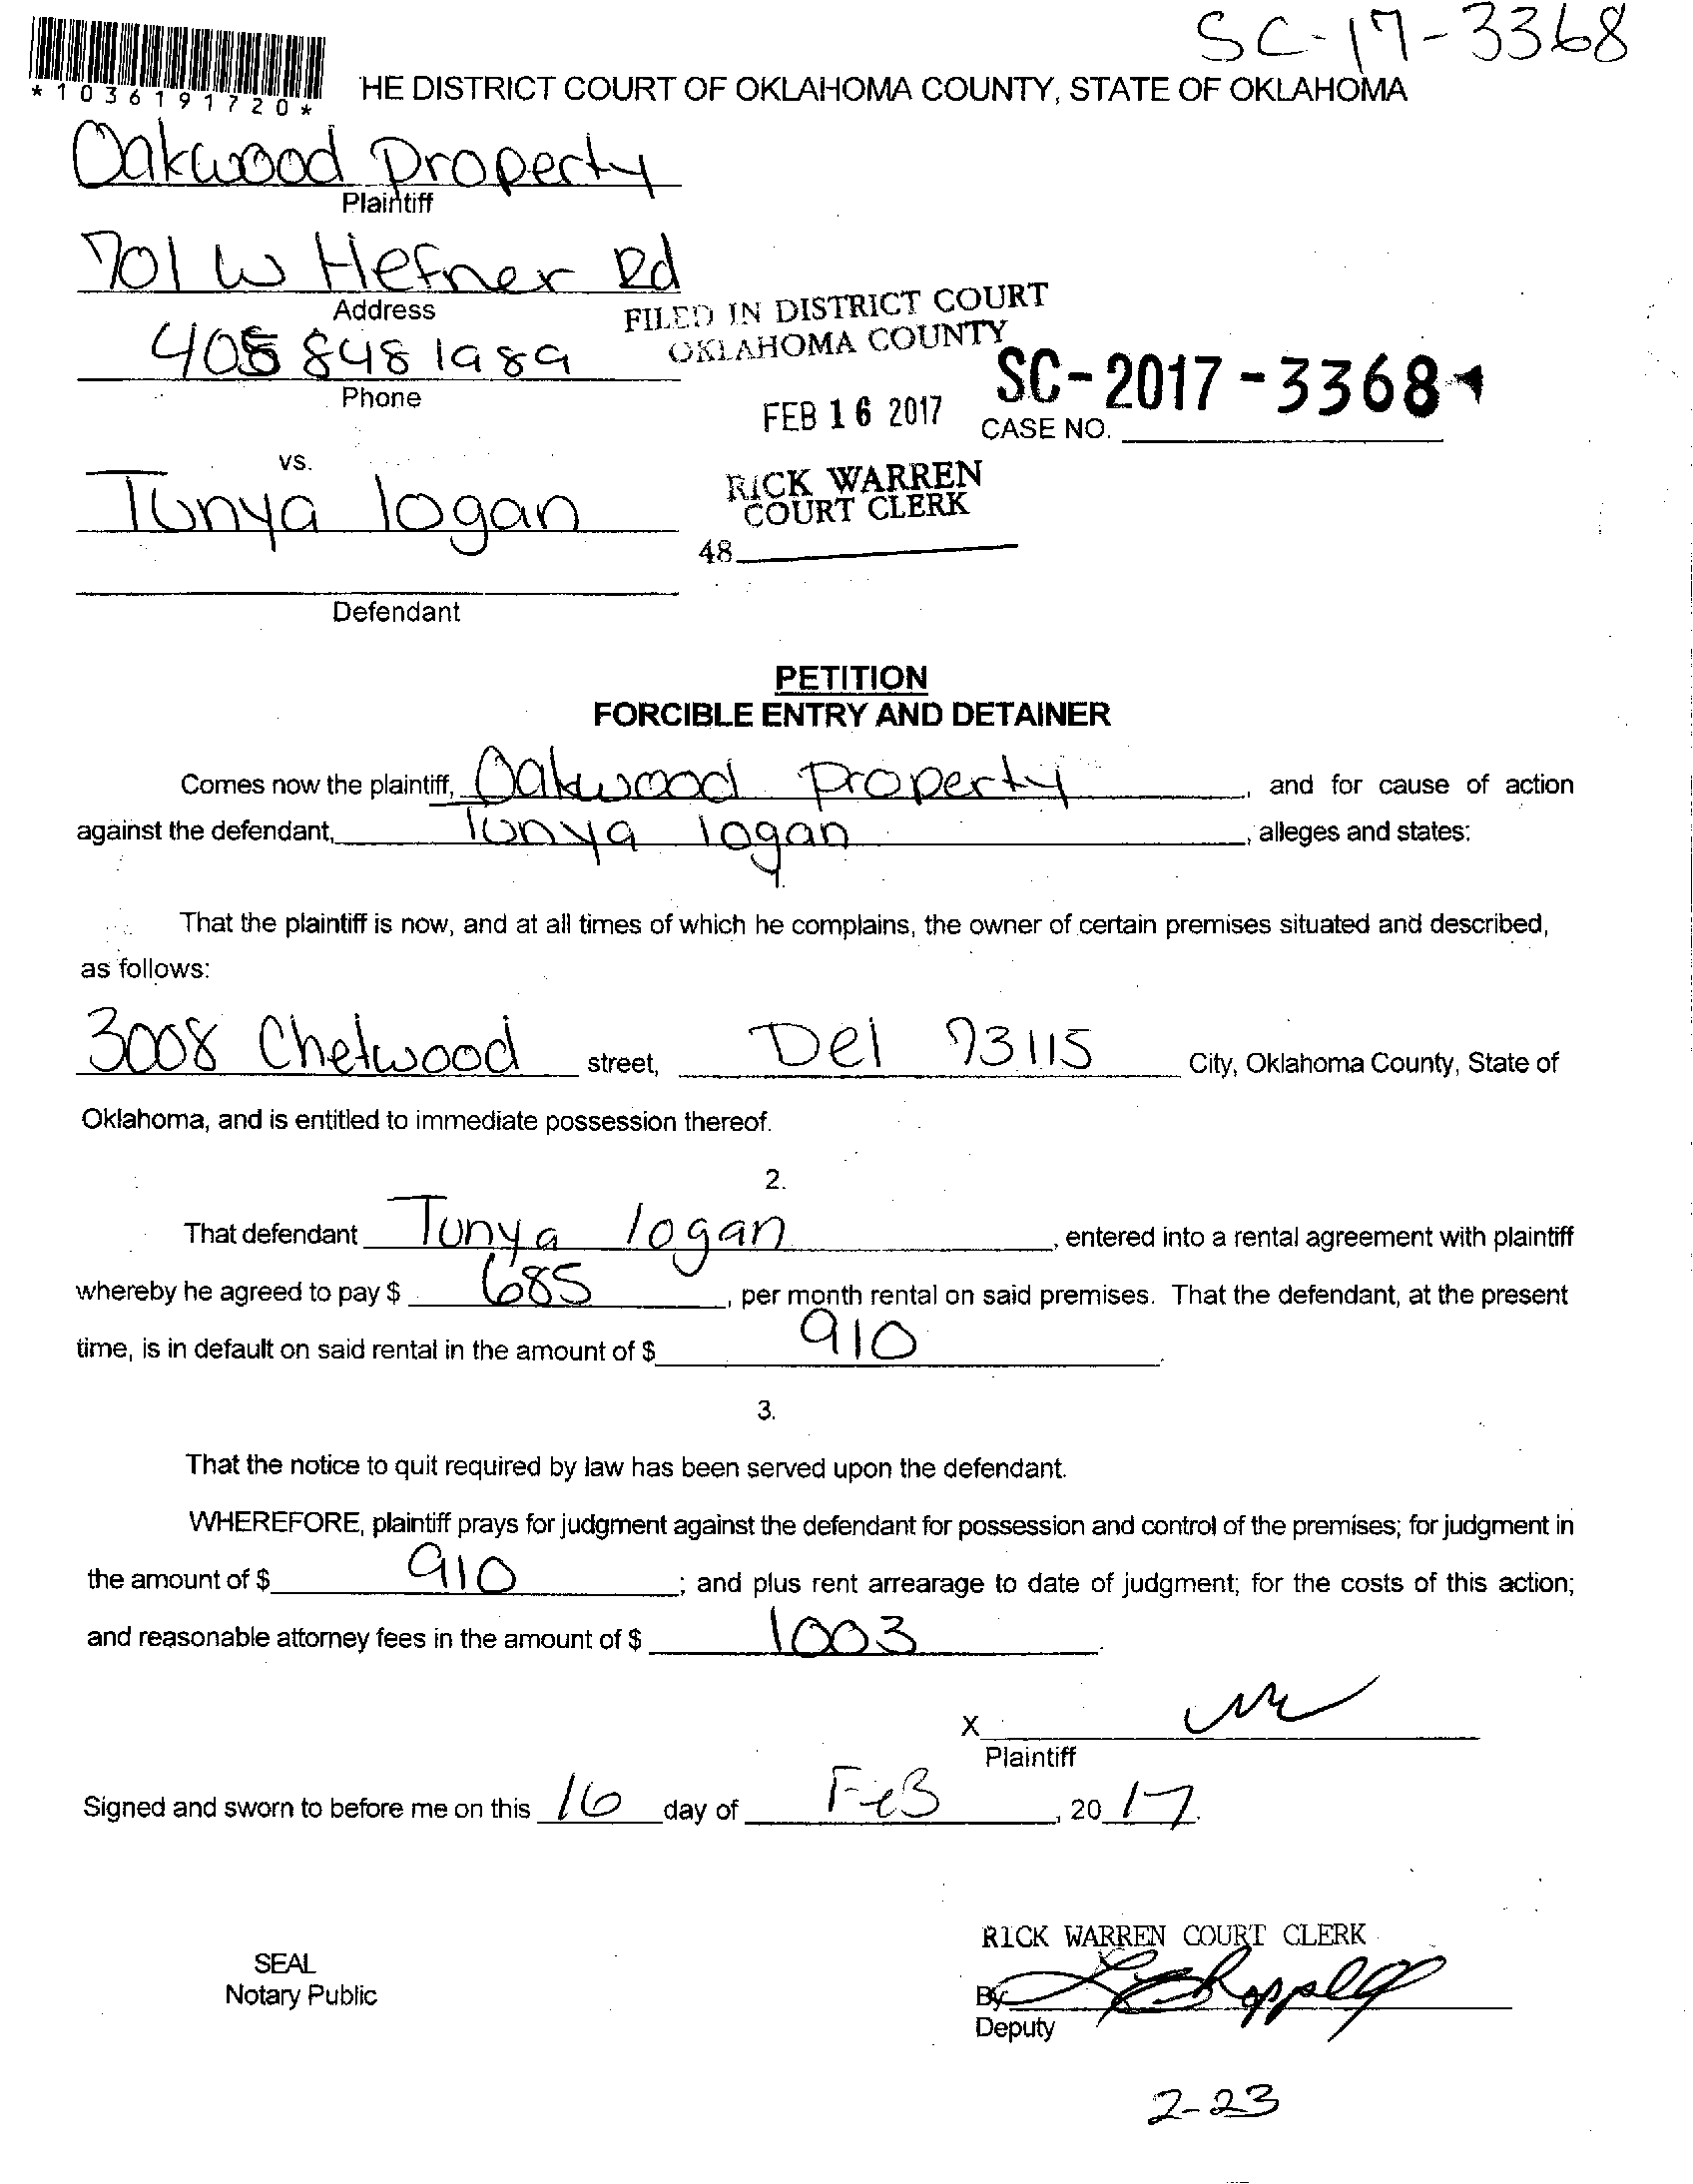 SC-17-3368
*1036191720*
HE DISTRICT COURT OF OKLAHOMA COUNTY, STATE OF OKLAHOMA
Oakwood Property
Plaintiff
701 W Hefner Rd
Address
405 848 1989
Phone
FILED IN DISTRICT COURT
OKLAHOMA COUNTY
FEB 16 2017
SC-2017-3368
CASE NO.
vs.
Tunya logan
RICK WARREN
COURT CLERK
48
Defendant
PETITION
FORCIBLE ENTRY AND DETAINER
Comes now the plaintiff, Oakwood Property, and for cause of action
against the defendant, Tunya logan, alleges and states:
1.
That the plaintiff is now, and at all times of which he complains, the owner of certain premises situated and described,
as follows:
3008 Chetwood street, Del 73115 City, Oklahoma County, State of
Oklahoma, and is entitled to immediate possession thereof.
2.
That defendant Tunya logan, entered into a rental agreement with plaintiff
whereby he agreed to pay $ 685, per month rental on said premises. That the defendant, at the present
time, is in default on said rental in the amount of $ 910.
3.
That the notice to quit required by law has been served upon the defendant.
WHEREFORE, plaintiff prays for judgment against the defendant for possession and control of the premises; for judgment in
the amount of $ 910; and plus rent arrearage to date of judgment; for the costs of this action;
and reasonable attorney fees in the amount of $ 1003.
X
Plaintiff
Signed and sworn to before me on this 16 day of FeB, 20 17.
RICK WARREN COURT CLERK
SEAL
Notary Public
By
Deputy
2-23